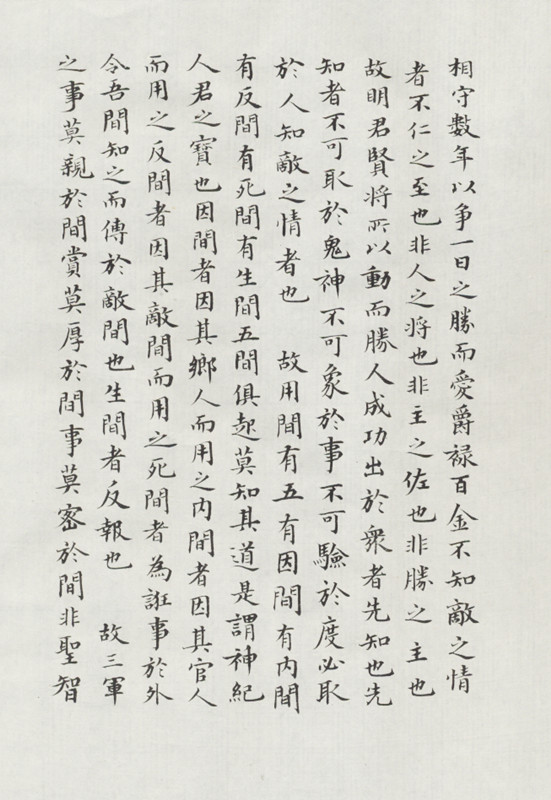 相守數年以爭一日之勝而愛爵祿百金不知敵之情
者不仁之至也非人之將也非主之佐也非勝之主也
故明君賢將所以動而勝人成功出於衆者先知也先
知者不可取於鬼神不可象於事不可驗於度必取
於人知敵之情者也 故用間有五有因間有內間
有反間有死間有生間五間俱起莫知其道是謂神紀
人君之寶也因間者因其鄉人而用之內間者因其官人
而用之反間者因其敵間而用之死間者為誑事於外
令吾間知之而傳於敵間也生間者反報也 故三軍
之事莫親於間賞莫厚於間事莫密於間非聖智